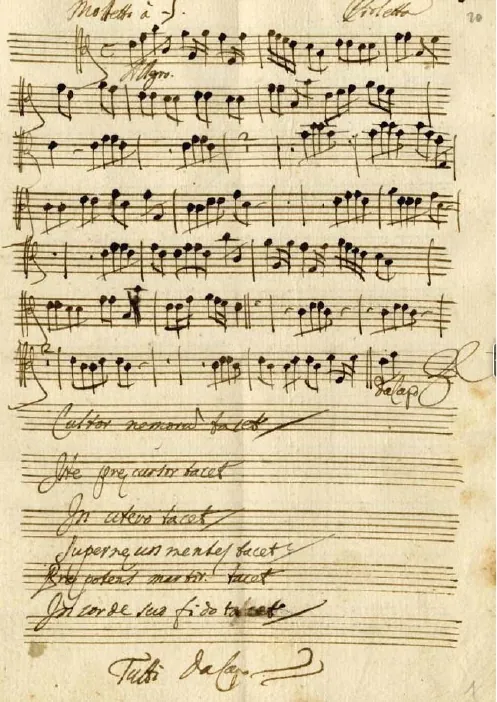 Mottetti à 3. Violetta 20
Allgro.
2
2
Da Capo
Cultor nemorũ tacet
Ite precursor tacet
In utero tacet
Superne mentes tacet
potens martir. tacet
In corde suo fido tacet
Tutti Da Capo